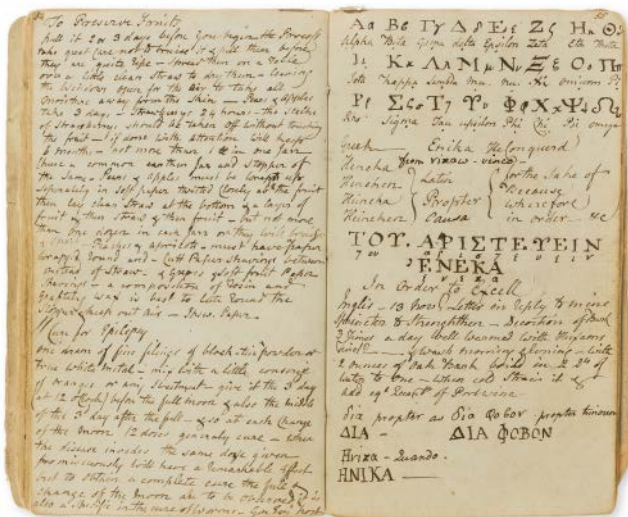 To Preserve Fruits
pull it 2 or 3 days before you begin the Process
take great care not to bruise it & pull them before
they are quite ripe - Spread them on a Table
over a little clean straw to dry them - leaving
the Windows open for the Air to take all
moisture away from the Skin - Pears & apples
take 3 days - Strawberrys 24 hours - the stalks
of Strawberrys should be taken off without touching
the fruit - if done with attention will keep
months - not more than in one Jar
Chuse a common earthen Jar and stopper of
the Same - Pears & apples must be wrapt up
separately in soft paper twisted closely abt the fruit
then lay clean straw at the bottom & a layer of
fruit & then straw & then fruit - but not more
than one dozen in each Jar or they will bruise
Peaches & apricots - must have paper
wrapped round and Cutt Paper Shavings between
instead of Straw - & Grapes & soft fruit Paper
Shavings - a composition of Rosin and
Grafting wax is best to lute round the
Stopper & keep out Air - Paper -
Cure for Epilepsy
one dram of fine filings of block-tin powder or
true white metal - mix with a little conserve
of oranges or any Sweetmeat - give it the 3 day
at 12 o'Clock before the full moon & also the middle
of the 3 day after the full - & so at each Change
of the Moon 12 doses generally cure - when
the disease invades the same dose given
promiscuously will have a remarkable effect
but to obtain a complete cure the full &
change of the Moon are to be observed & is
also a Specific in the cure of worms -
Αα Ββ Γγ Δδ Εε Ζζ Ηη Θ
Alpha Beta Gamma delta Epsilon Zeta Eta Theta
Ιι Κκ Λλ Μμ Νν Ξξ Οο Ππ
Iota Kappa Lambda mu. nu. Xi omicron Pi
Ρρ Σςσ Ττ Υυ Φφ Χχ Ψψ Ω
Rho Sigma Tau upsilon Phi Chi Psi omega
Greek Enika He Conquer'd
Heneka from νικαω - vinco -
Heneken Latin for the sake of
Heineka Propter Because
Heineken Causa wherefore
in order &c
ΤΟΥ. ΑΡΙΣΤΕΥΕΙΝ
του αριστευειν
ΕΝΕΚΑ
ενεκα
In Order to Excell
Inglis - 13 Novr Letter in Reply to mine
Sphincter to Strengthen - Decoction of Bark
3 Times a day well warmed with
wash morning & evening - with
2 ounces of Oak Bark boiled in
Water to One - when cold Strain it &
add of
δια propter as δια φοβον propter timorem
ΔΙΑ - ΔΙΑ ΦΟΒΟΝ
Ηνικα - Quando.
ΗΝΙΚΑ